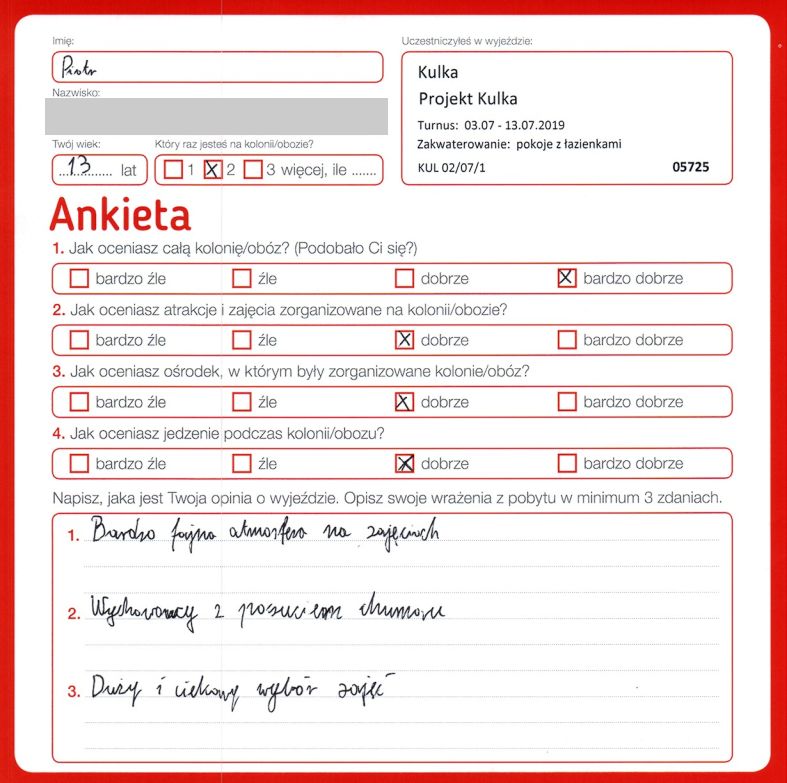 Imię:
Piotr
Nazwisko:
Twój wiek:
13 lat
Który raz jesteś na kolonii/obozie?
1 X 2 3 więcej, ile .......
Uczestniczyłeś w wyjeździe:
Kulka
Projekt Kulka
Turnus: 03.07 - 13.07.2019
Zakwaterowanie: pokoje z łazienkami
KUL 02/07/1 05725
Ankieta
1. Jak oceniasz całą kolonię/obóz? (Podobało Ci się?)
bardzo źle źle dobrze X bardzo dobrze
2. Jak oceniasz atrakcje i zajęcia zorganizowane na kolonii/obozie?
bardzo źle źle X dobrze bardzo dobrze
3. Jak oceniasz ośrodek, w którym były zorganizowane kolonie/obóz?
bardzo źle źle X dobrze bardzo dobrze
4. Jak oceniasz jedzenie podczas kolonii/obozu?
bardzo źle źle X dobrze bardzo dobrze
Napisz, jaka jest Twoja opinia o wyjeździe. Opisz swoje wrażenia z pobytu w minimum 3 zdaniach.
1. Bardzo fajna atmosfera na zajęciach
2. Wychowawcy z posuciem chumoru
3. Duży i ciekawy wybór zajęć